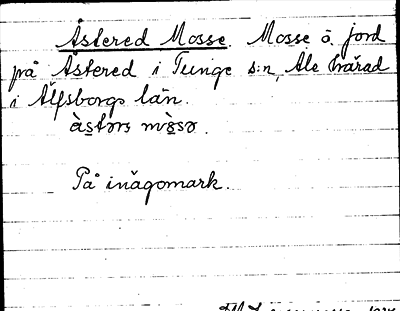 Åstered Mosse. Mosse å jord
på Åstered i Tunge s:n, Ale härad
i Älfsborgs län.
àstərs mòsə.
På inägomark.